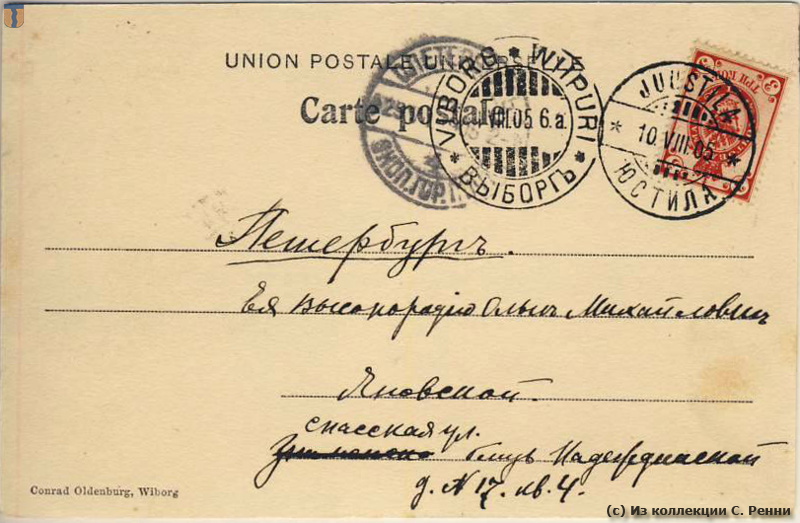 UNION POSTALE UNIVERSELLE
Carte postale
VIBORG * WIIPURI
VIII.05 6.a.
* ВЫБОРГЪ *
JUUSTILA
* 10.VIII.05 *
ЮСТИЛА
3 ТРИ КОП 3
Петербургъ.
Ея Высокородiю Ольгѣ Михайловнѣ
Яновской.
Спасская ул.
близъ Надеждинской
д. N 17. кв. 4.
Conrad Oldenburg, Wiborg
(с) Из коллекции С. Ренни